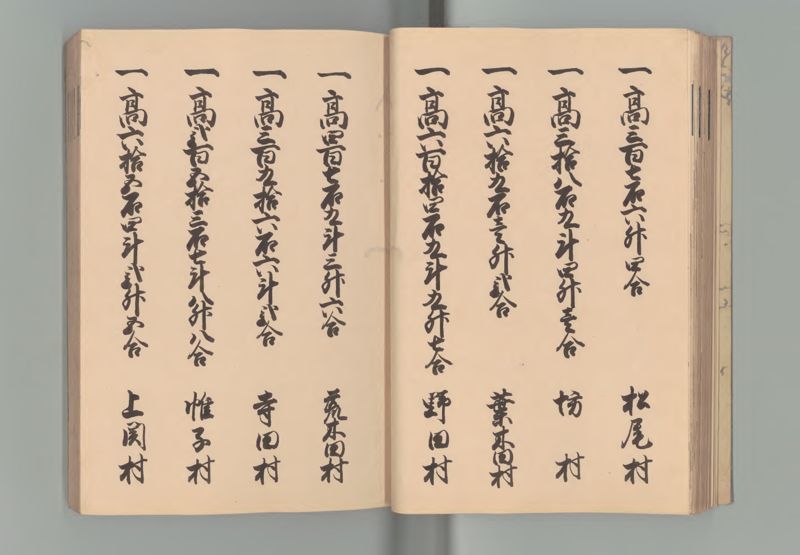 一高三百七石六升四合 松尾村
一高三拾八石九斗四升壱合 坊村
一高六拾九石壱升弐合 葉木田村
一高六百拾四石五斗五升七合 野田村
一高四百七石九斗三升六合 荒木田村
一高三百九拾六石六斗弐合 寺田村
一高弐百五拾三石七斗八升八合 帷子村
一高六拾五石四斗弐升五合 上関村